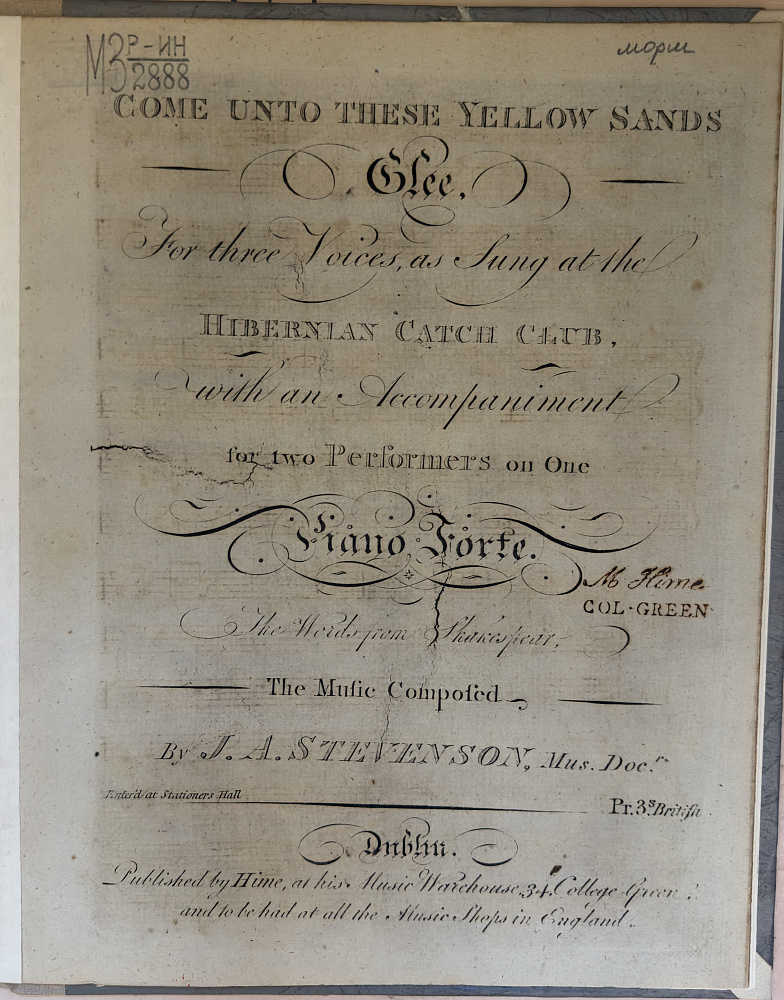 МЗ Р-ИН
2888
морш
COME UNTO THESE YELLOW SANDS
Glee,
For three Voices, as Sung at the
HIBERNIAN CATCH CLUB,
with an Accompaniment
for two Performers on One
Piano Forte.
M Hime
COL-GREEN
The Words from Shakespear,
The Muſic Compoſed
By J. A. STEVENSON, Mus. Doc.r
Enter'd at Stationers Hall
Pr. 3s. Britiſh
Dublin.
Published by Hime, at his Music Warehouse 34, College Green
and to be had at all the Music Shops in England.